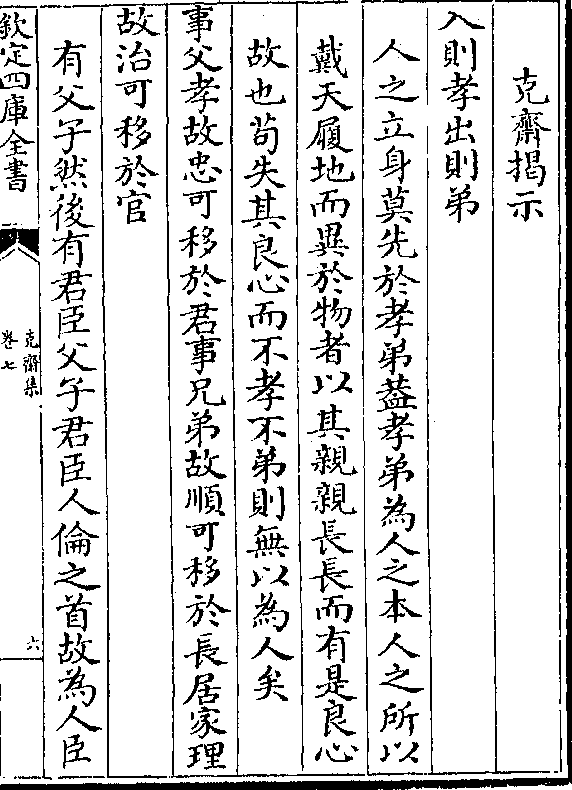 克齋揭示
入則孝出則弟
人之立身莫先於孝弟葢孝弟為人之本人之所以
戴天履地而異於物者以其親親長長而有是良心
故也茍失其良心而不孝不弟則無以為人矣
事父孝故忠可移於君事兄弟故順可移於長居家理
故治可移於官
有父子然後有君臣父子君臣人倫之首故為人臣
欽定四庫全書
克齋集
卷七
六